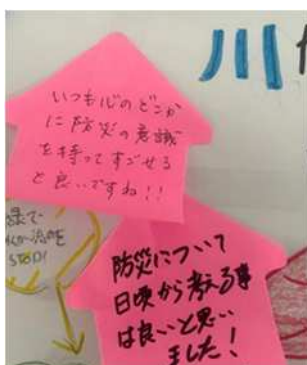 川
いつも心のどこか
に防災の意識
を持ってすごせる
と良いですね!!
STOP!
防災について
日頃から考える事
は良いと思い
ました!